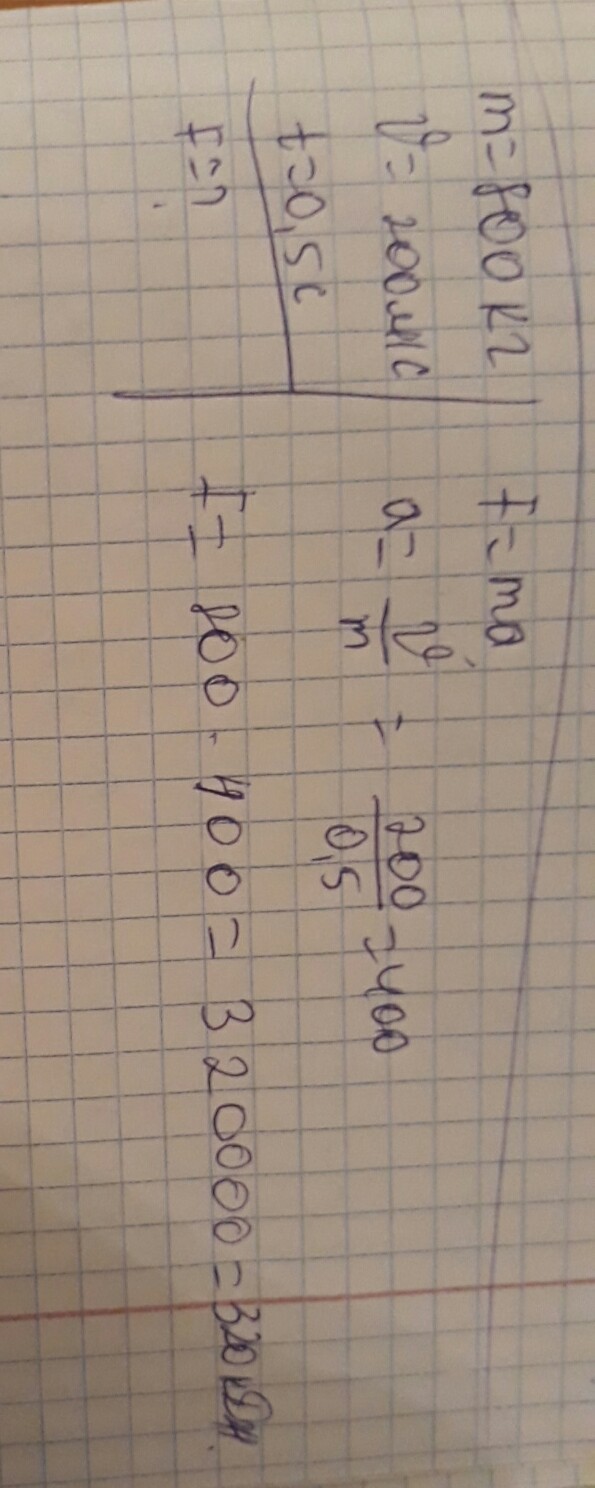 m=800 кг
𝒱= 200м/с
t=0,5с
F=?
F=ma
a= 𝒱/m = 200/0,5 =400
F= 800·400=320000=320